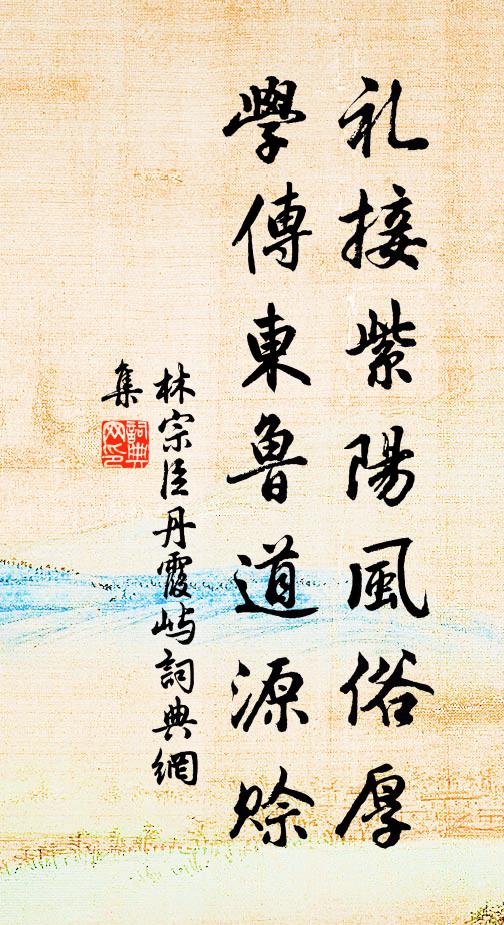 礼接紫陽風俗厚
學傳東魯道源賒
林宗臣丹霞屿詞典網
集
詞典
网印